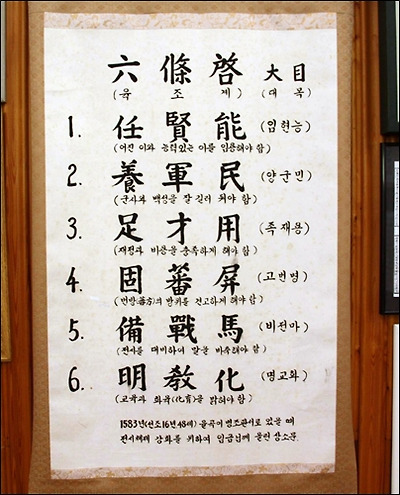 六 條 啓 大目
(육 조 계) (대 목)
1. 任 賢 能 (임현능)
(어진 이와 능력있는 이를 임용해야 함)
2. 養 軍 民 (양군민)
(군사와 백성을 잘 길러 줘야 함)
3. 足 才 用 (족재용)
(재정과 비용을 충족하게 해야 함)
4. 固 蕃 屛 (고번병)
(번방(蕃方)의 방비를 견고하게 해야 함)
5. 備 戰 馬 (비전마)
(전시를 대비하여 말을 비축해야 함)
6. 明 敎 化 (명교화)
(교육과 화육(化育)을 밝혀야 함)
1583년(선조16년 48세) 율곡이 병조판서로 있을 때
강화를 위하여 임금님께 올린 상소문